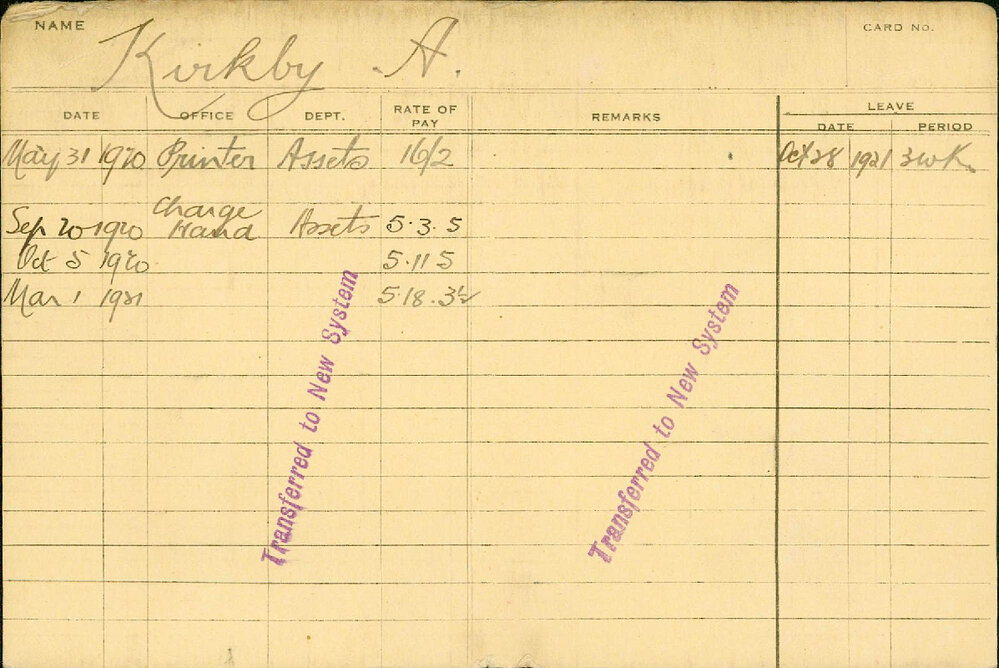 NAME
CARD NO.
Kirkby A.
DATE OFFICE DEPT. RATE OF PAY REMARKS LEAVE
DATE PERIOD
May 31 1920 Printer Assets 16/2 Oct 28 1921 3 wk.
Sep 20 1920 Charge Hand Assets 5.3.5
Oct 5 1920 5.11 5
Mar 1 1921 5.18.3½
Transferred to New System
Transferred to New System